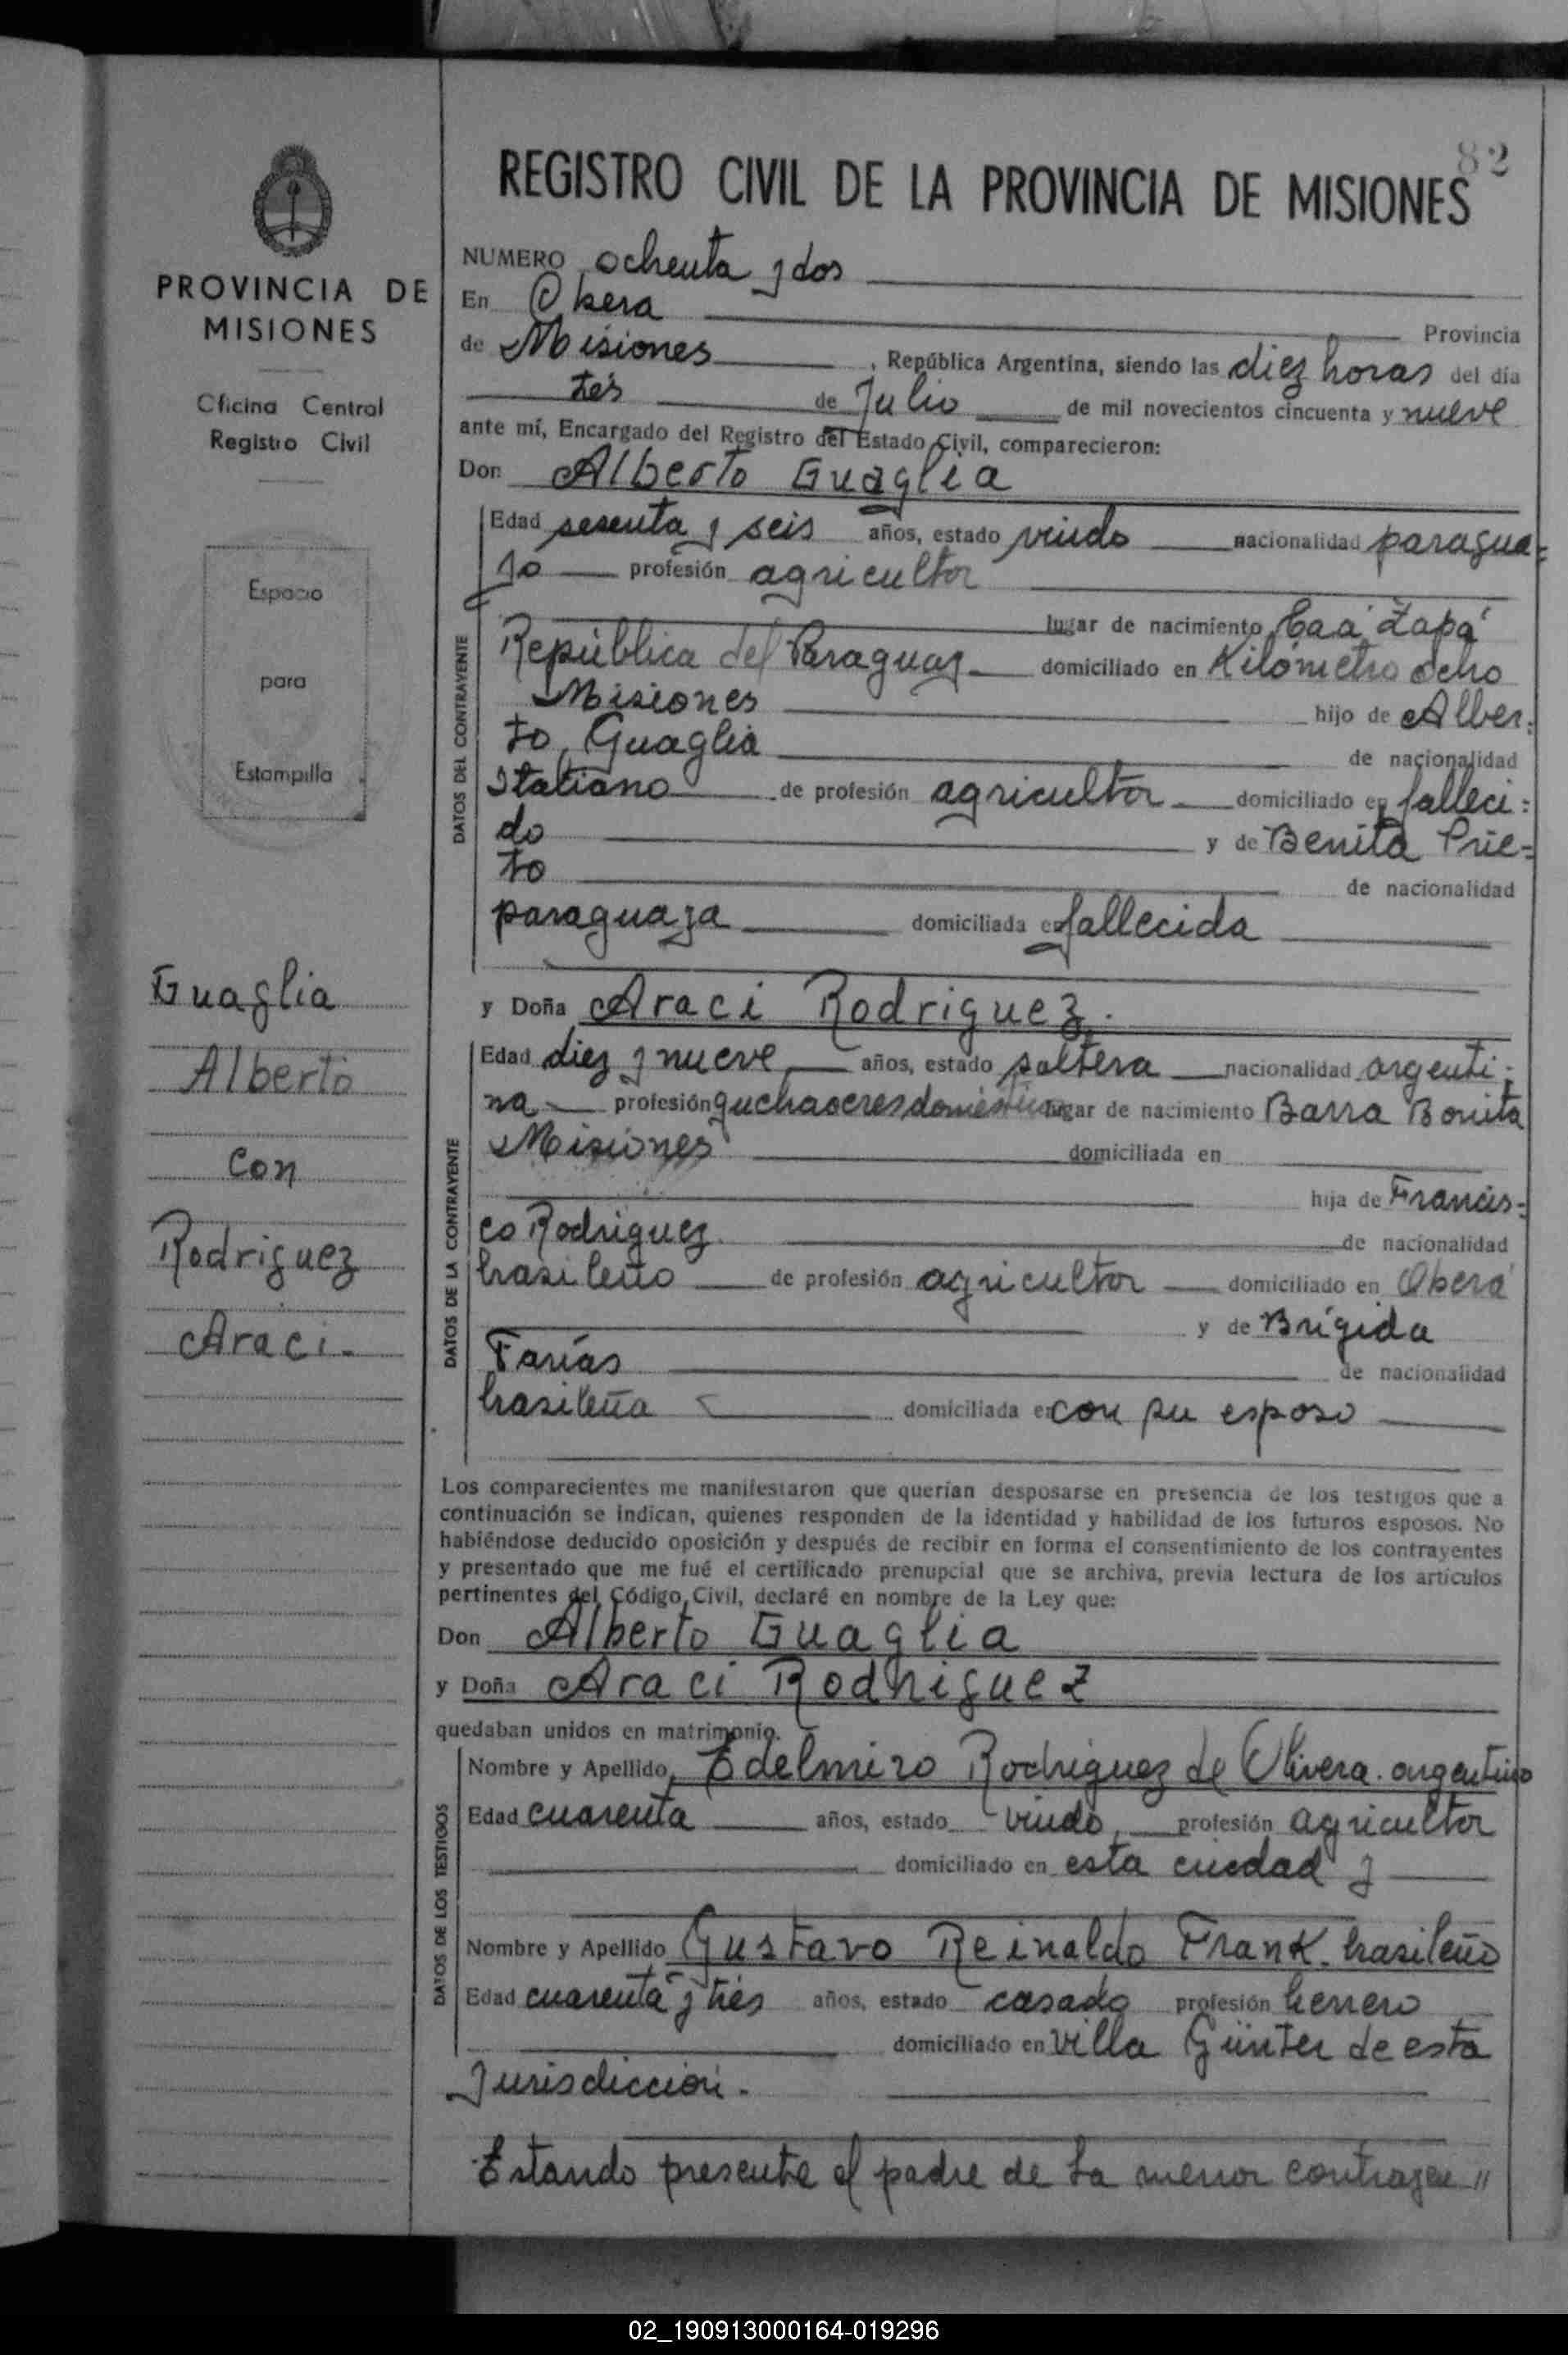 82
REGISTRO CIVIL DE LA PROVINCIA DE MISIONES
PROVINCIA DE
MISIONES
Oficina Central
Registro Civil
Espacio
para
Estampilla
Guaglia
Alberto
con
Rodriguez
Araci.
NUMERO ochenta y dos
En Obera Provincia
de Misiones, República Argentina, siendo las diez horas del día
tres de Julio de mil novecientos cincuenta y nueve
ante mí, Encargado del Registro del Estado Civil, comparecieron:
Don Alberto Guaglia
DATOS DEL CONTRAYENTE
Edad sesenta y seis años, estado viudo nacionalidad paragua=
yo profesión agricultor
lugar de nacimiento Caá Zapá
República del Paraguay domiciliado en Kilómetro ocho
Misiones hijo de Alber=
to, Guaglia de nacionalidad
Italiano de profesión agricultor domiciliado en falleci=
do y de Benita Prie=
to de nacionalidad
paraguaya domiciliada en fallecida
y Doña Araci Rodriguez.
DATOS DE LA CONTRAYENTE
Edad diez y nueve años, estado soltera nacionalidad argenti=
na profesión quehaceres domésticos lugar de nacimiento Barra Bonita
Misiones domiciliada en
hija de Francis=
co Rodriguez de nacionalidad
brasileño de profesión agricultor domiciliado en Oberá
y de Brígida
Farías de nacionalidad
brasileña domiciliada en con su esposo
Los comparecientes me manifestaron que querían desposarse en presencia de los testigos que a
continuación se indican, quienes responden de la identidad y habilidad de los futuros esposos. No
habiéndose deducido oposición y después de recibir en forma el consentimiento de los contrayentes
y presentado que me fué el certificado prenupcial que se archiva, previa lectura de los artículos
pertinentes del Código Civil, declaré en nombre de la Ley que:
Don Alberto Guaglia
y Doña Araci Rodriguez
quedaban unidos en matrimonio.
DATOS DE LOS TESTIGOS
Nombre y Apellido Edelmiro Rodriguez de Olivera. argentino
Edad cuarenta años, estado viudo, profesión agricultor
domiciliado en esta ciudad y
Nombre y Apellido Gustavo Reinaldo Frank. brasileño
Edad cuarenta y tres años, estado casado profesión herrero
domiciliado en Villa Günter de esta
Jurisdicción.
Estando presente el padre de la menor contrayen "
02_190913000164-019296